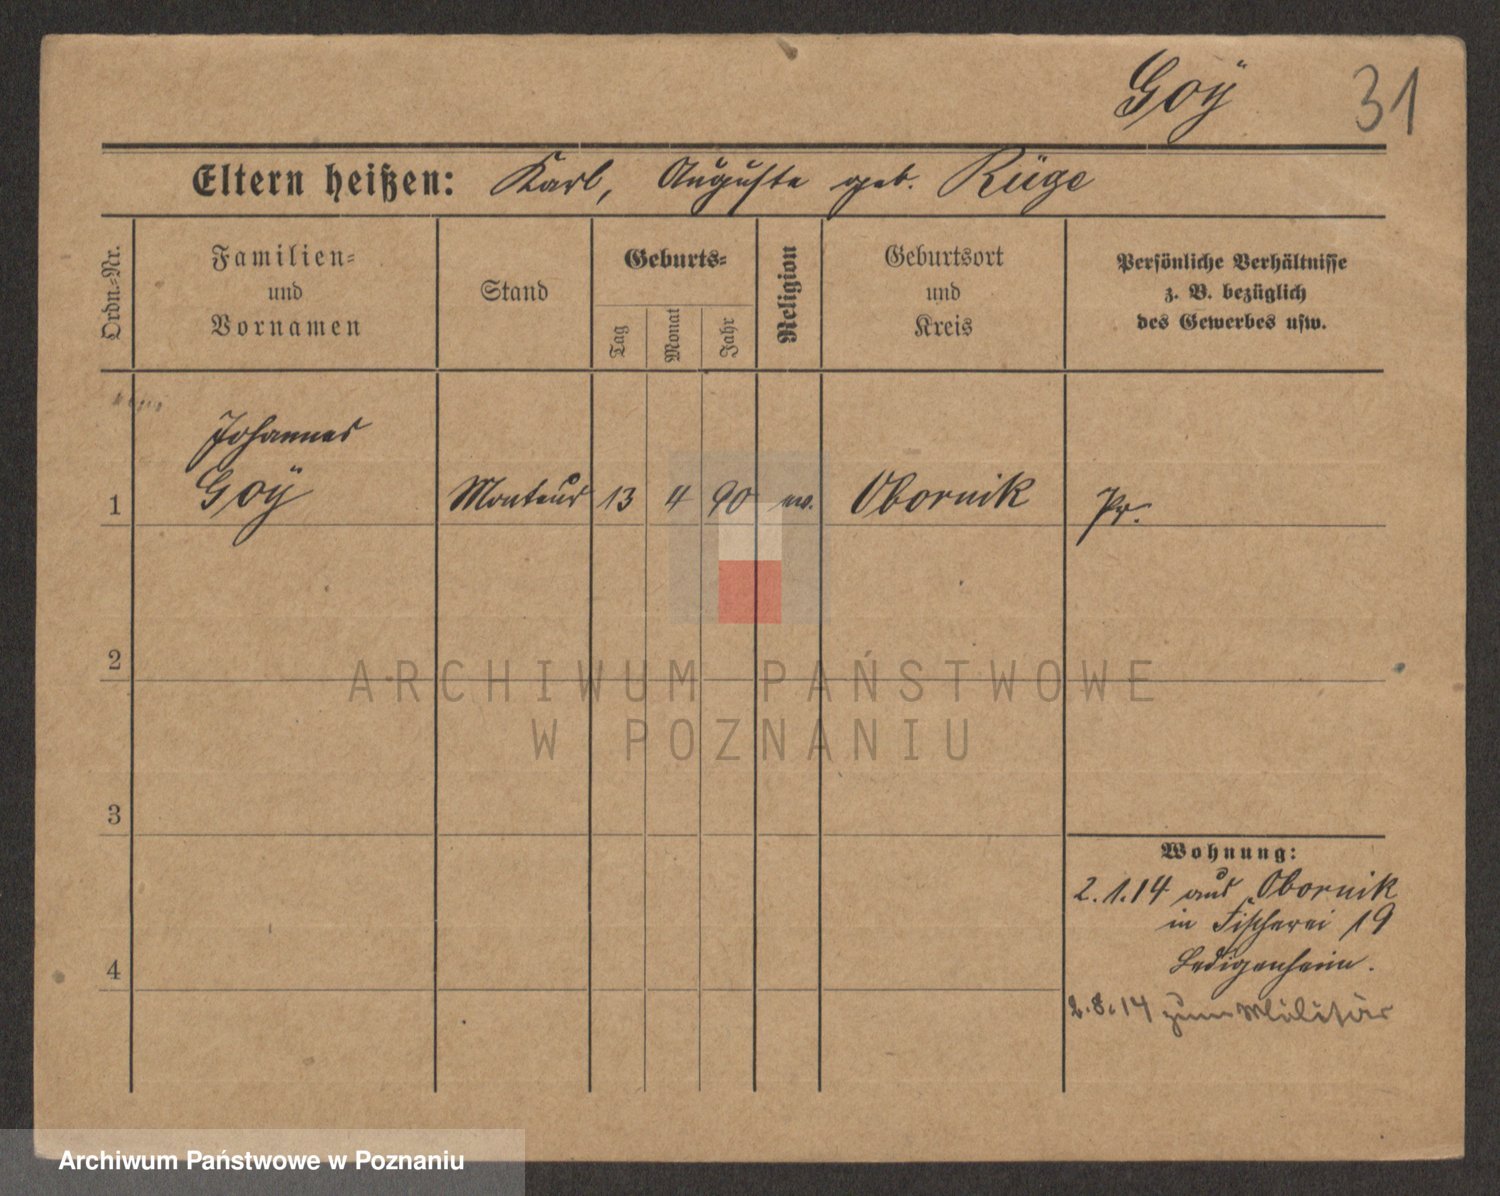 Goÿ 31
Eltern heißen: Karl, Auguste geb. Rüge
Ordn.-Nr.
Familien-
und
Vornamen
Stand
Geburts-
Tag
Monat
Jahr
Religion
Geburtsort
und
Kreis
Persönliche Verhältnisse
z. B. bezüglich
des Gewerbes usw.
Johannes
1 Goÿ Monteur 13 4 90 ev. Obornik Pr.
2
3
4
Wohnung:
2.1.14 aus Obornik
in Fischerei 19
Ledigenheim.
2.8.14 zum Militär
ARCHIWUM PAŃSTWOWE
W POZNANIU
Archiwum Państwowe w Poznaniu